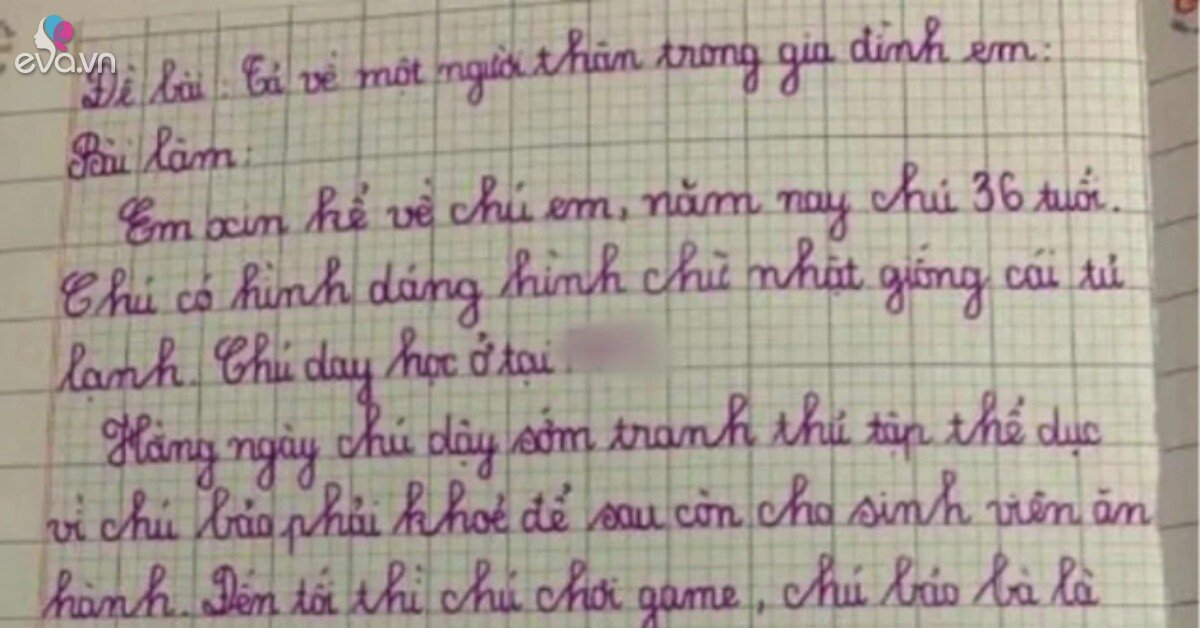 eva.vn
Đề bài: Tả về một người thân trong gia đình em:
Bài làm:
Em xin kể về chú em, năm nay chú 36 tuổi.
Chú có hình dáng hình chữ nhật giống cái tủ
lạnh. Chú dạy học ở tại
Hàng ngày chú dậy sớm tranh thủ tập thể dục
vì chú bảo phải khoẻ để sau còn cho sinh viên ăn
hành. Đến tối thì chú chơi game, chú bảo bà là